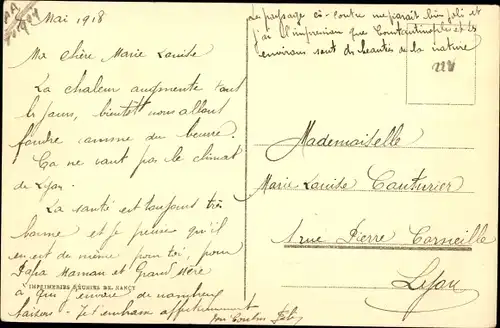 Mai 1918
Ma chère Marie Louise
La chaleur augmente tous
les jours, bientôt nous allons
fondre comme du beurre.
Ça ne vaut pas le climat
de Lyon.
La santé est toujours très
bonne et je pense qu'il
en est de même pour toi, pour
Papa Maman et Grand Mère
à qui envoie de nombreux
baisers - Je t'embrasse affectueusement
ton
IMPRIMERIES RÉUNIES DE NANCY
Le paysage ci-contre me parait bien joli et
j'ai l'impression que Constantinople et les
environs sont des beautés de la nature
222
Mademoiselle
Marie Louise Couturier
1 rue Pierre Corneille
Lyon